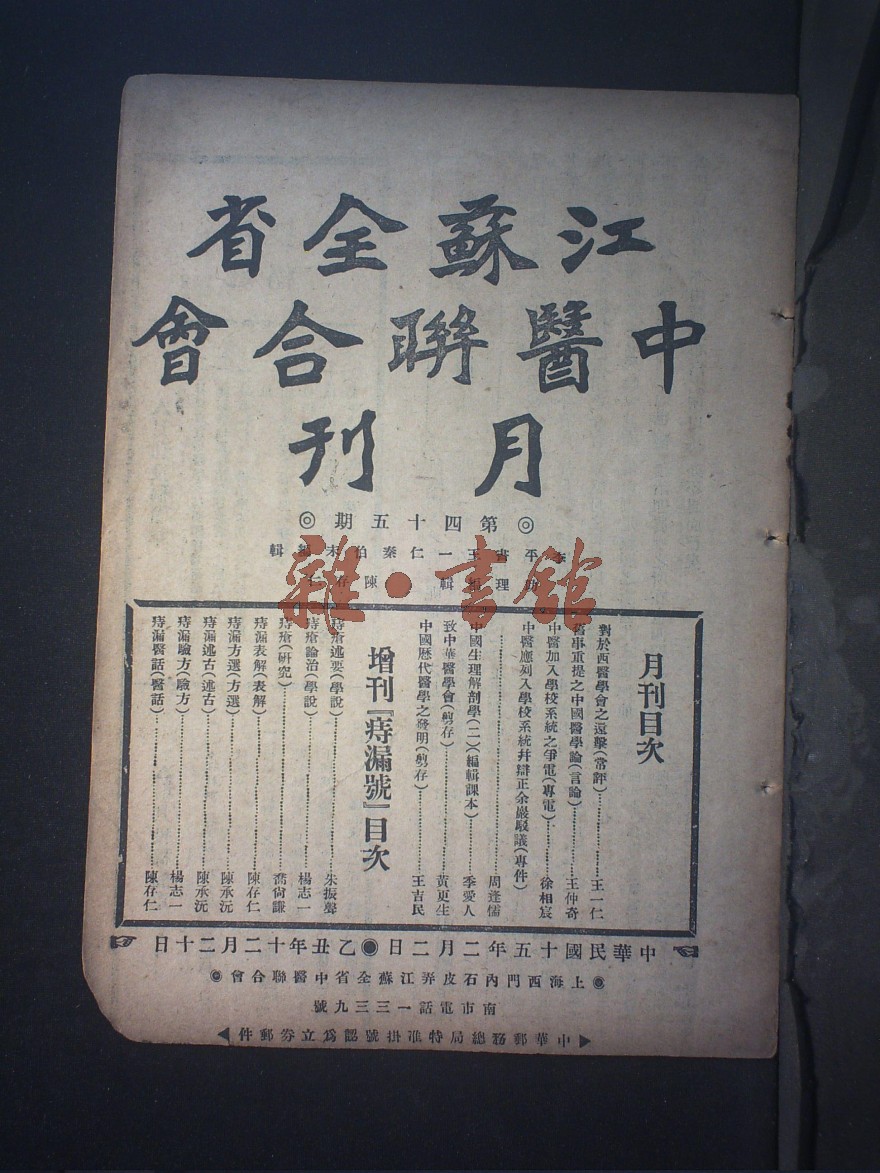 江蘇全省
中醫聯合會
月刊
◎第四十五期◎
李平書王一仁秦伯未編輯
助理編輯 陳存仁
月刊目次
對於西醫學會之遠擊(常評)…………王一仁
舊事重提之中國醫學論(言論)…………王仲奇
中醫加入學校系統之爭電(專電)…………徐相宸
中醫應列入學校系統幷辯正余巖駁議(專件)
…………周逢儒
中國生理解剖學(二)(編輯課本)…………季愛人
致中華醫學會(剪存)…………黃更生
中國歷代醫學之發明(剪存)…………王吉民
增刊『痔漏號』目次
痔瘡述要(學說)…………朱振聲
痔瘡論治(學說)…………楊志一
痔瘡(研究)…………喬尙謙
痔漏表解(表解)…………陳存仁
痔漏方選(方選)…………陳承沅
痔漏述古(述古)…………陳承沅
痔漏驗方(驗方)…………楊志一
痔漏醫話(醫話)…………陳存仁
中華民國十五年二月二日◉乙丑年十二月二十日
◉上海西門內石皮弄江蘇全省中醫聯合會◉
南市電話一三三九號
▶中華郵務總局特准掛號認爲立劵郵件◀
雜·書館